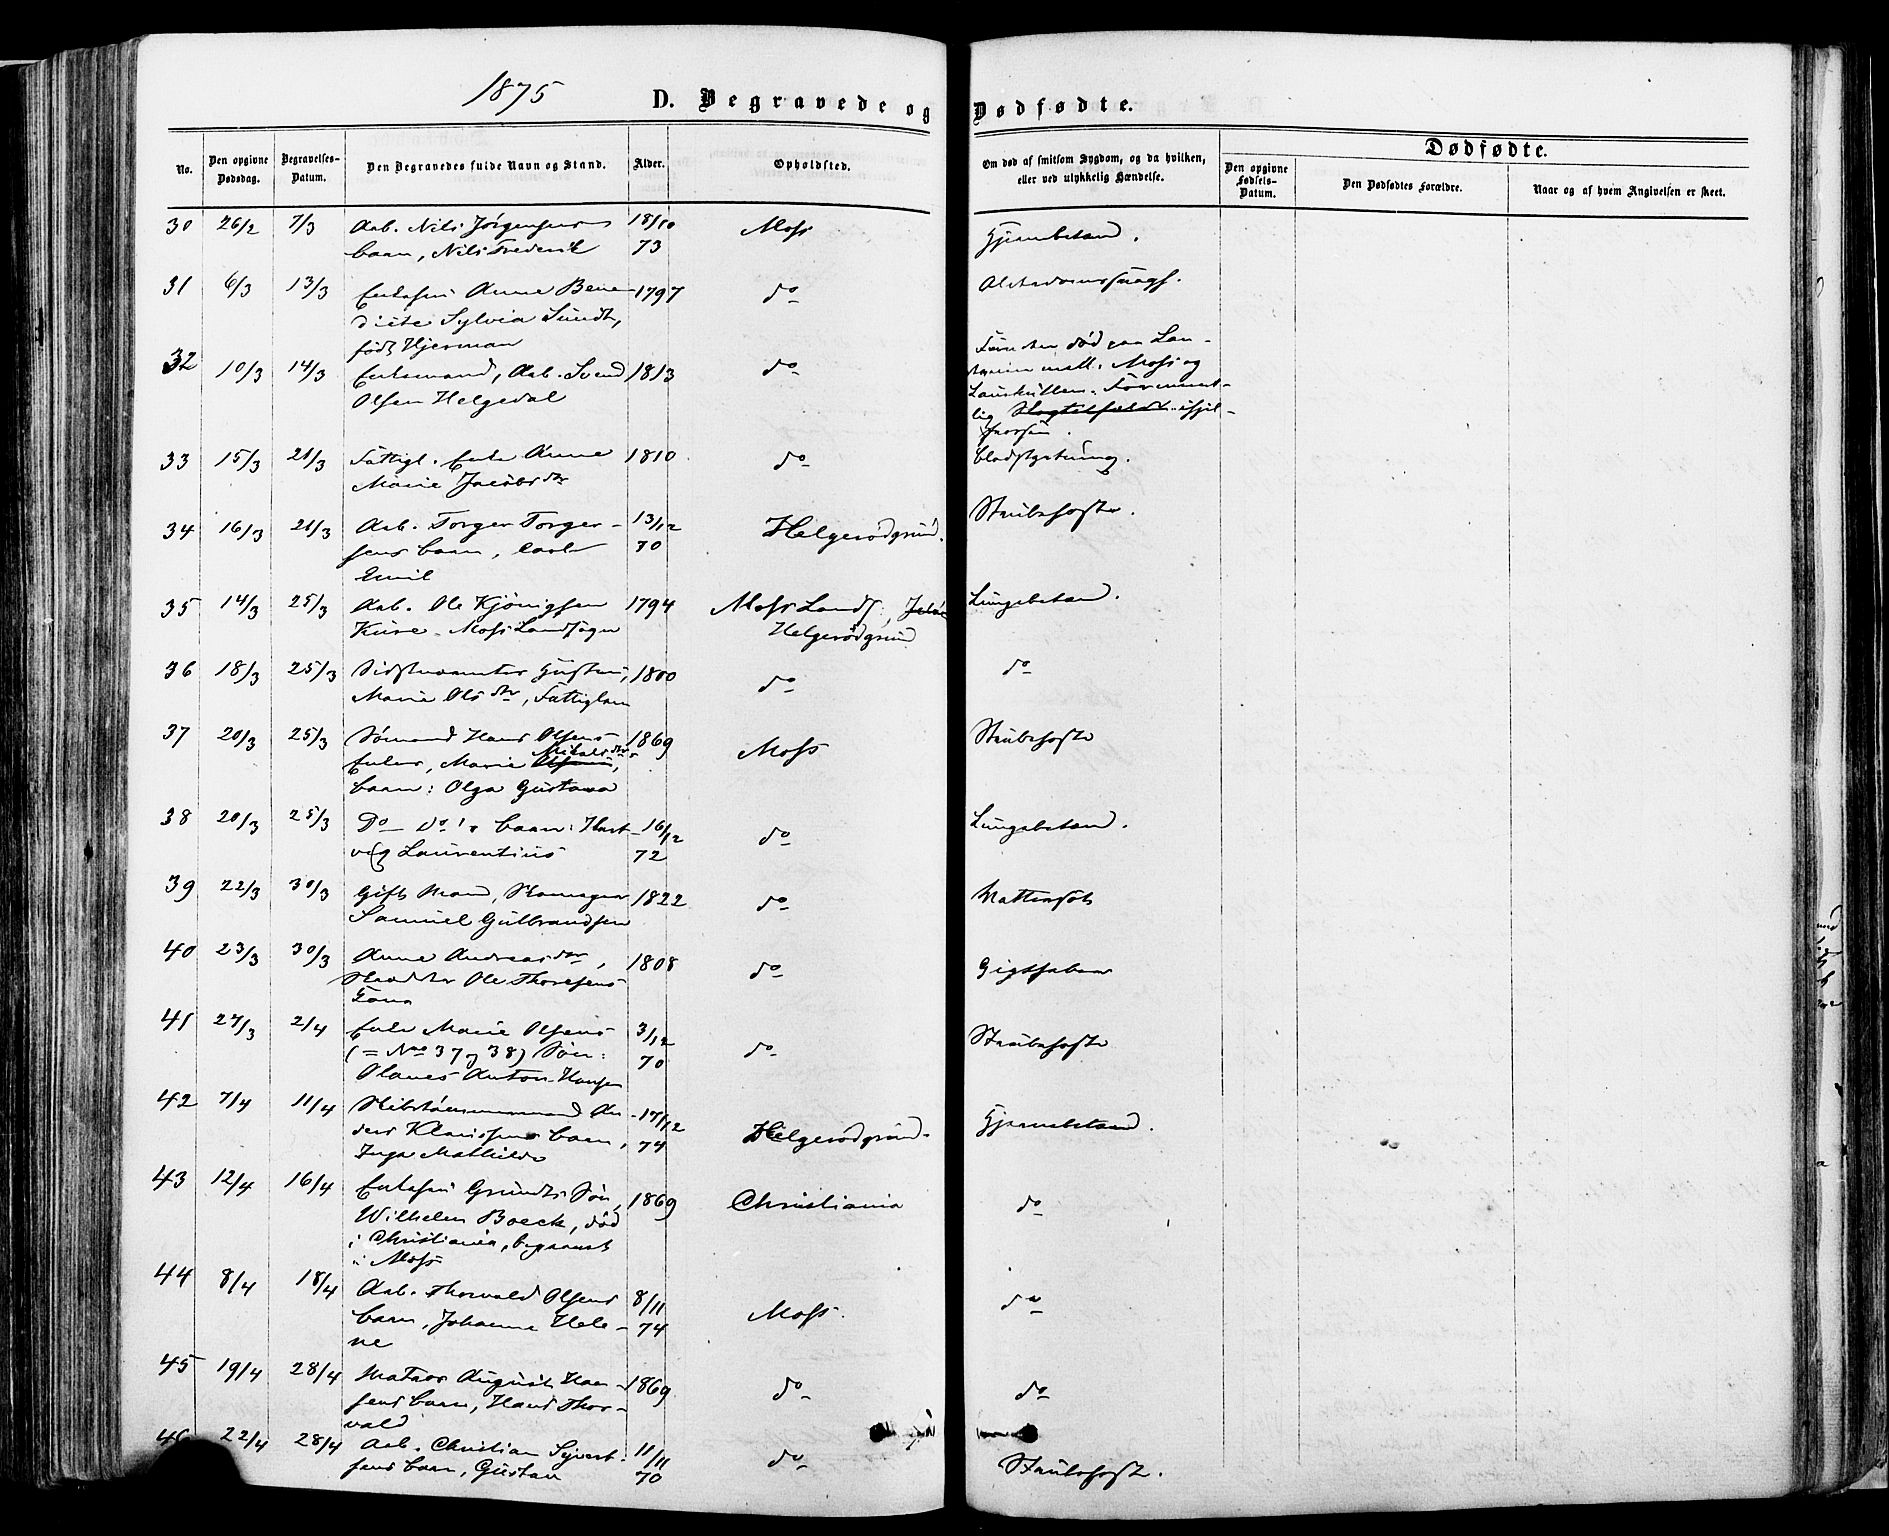 1875
D. Begravede og Dødfødte.
No.
Den opgivne Dødsdag.
Begravelses-Datum.
Den Begravedes fulde Navn og Stand.
Alder.
Opholdsted.
Om død af smitsom Sygdom, og da hvilken, eller ved ulykkelig Hændelse.
Dødfødte.
Den opgivne Fødsels-Datum.
Den Dødfødtes Forældre.
Naar og af hvem Angivelsen er skeet.
30 26/2 7/3 Arb. Nils Jørgensens 18/10 Moss Hjernebetænd.
barn, Nils Frederik 73
31 6/3 13/3 Enkefru Anne Bene- 1797 do Alderdomssvagh.
dicte Sylvia Sundt,
født Hjerman
32 10/3 14/3 Enkemand, Arb. Svend 1813 do Funden død paa Lan-
Olsen Helgedal
mell. Moss og
Forment-
lig ihjel-
frossen.
33 15/3 21/3 Fattigl. Enke Anne 1810 do Blodstyrtning.
Marie Jacobsdtr
34 16/3 21/3 Arb. Torger Torger- 13/12 Helgerødgrund. Strubehoste.
sens barn, Carl 70
Emil
35 14/3 25/3 Arb. Ole Kjönigsen 1794 Moss Lands, Jeløe Lungebetænd.
Kure. Moss Landsogn Helgerødgrund
36 18/3 25/3 Gustava 1800 do do
Marie Olsdtr, Fattiglem
37 20/3 25/3 Sømand Hans Olsens 1869 Moss Strubehoste
Enkes, Marie Olsens, Mikalsdtrs
barn: Olga Gustava
38 20/3 25/3 Do do's barn: Hart- 16/12 do Lungebetænd.
vig Laurentius 72
39 22/3 30/3 Gift Mand, Skomager 1822 do Vattersot
Samuel Gulbrandsen
40 23/3 30/3 Anne Andreasdtr, 1808 do Gigtfeber
Skrædder Ole Thoresens
Kone
41 27/3 2/4 Enke Marie Olsens 3/12 do Strubehoste
(= No 37 og 38) Søn: 70
Olaves Anton Hansen
42 7/4 11/4 Skibstømmermand An- 17/12 Helgerødgrund. Hjernebetænd.
ders Klausens barn, 74
Inga Mathilde
43 12/4 16/4 Enkefru Grundts Søn, 1869 Christiania do
Wilhelm Boeck, død
i Christiania, begravet
i Moss
44 8/4 18/4 Arb. Thorvald Olsens 8/11 Moss. do
barn, Johanne Hele- 74
ne
45 19/4 28/4 Matros August Han- 1869 do do
sens barn, Hans Thor-
vald
46 22/4 28/4 Arb. Christian Syvert- 11/11 do Strubehoste.
sens barn, Gustav 70